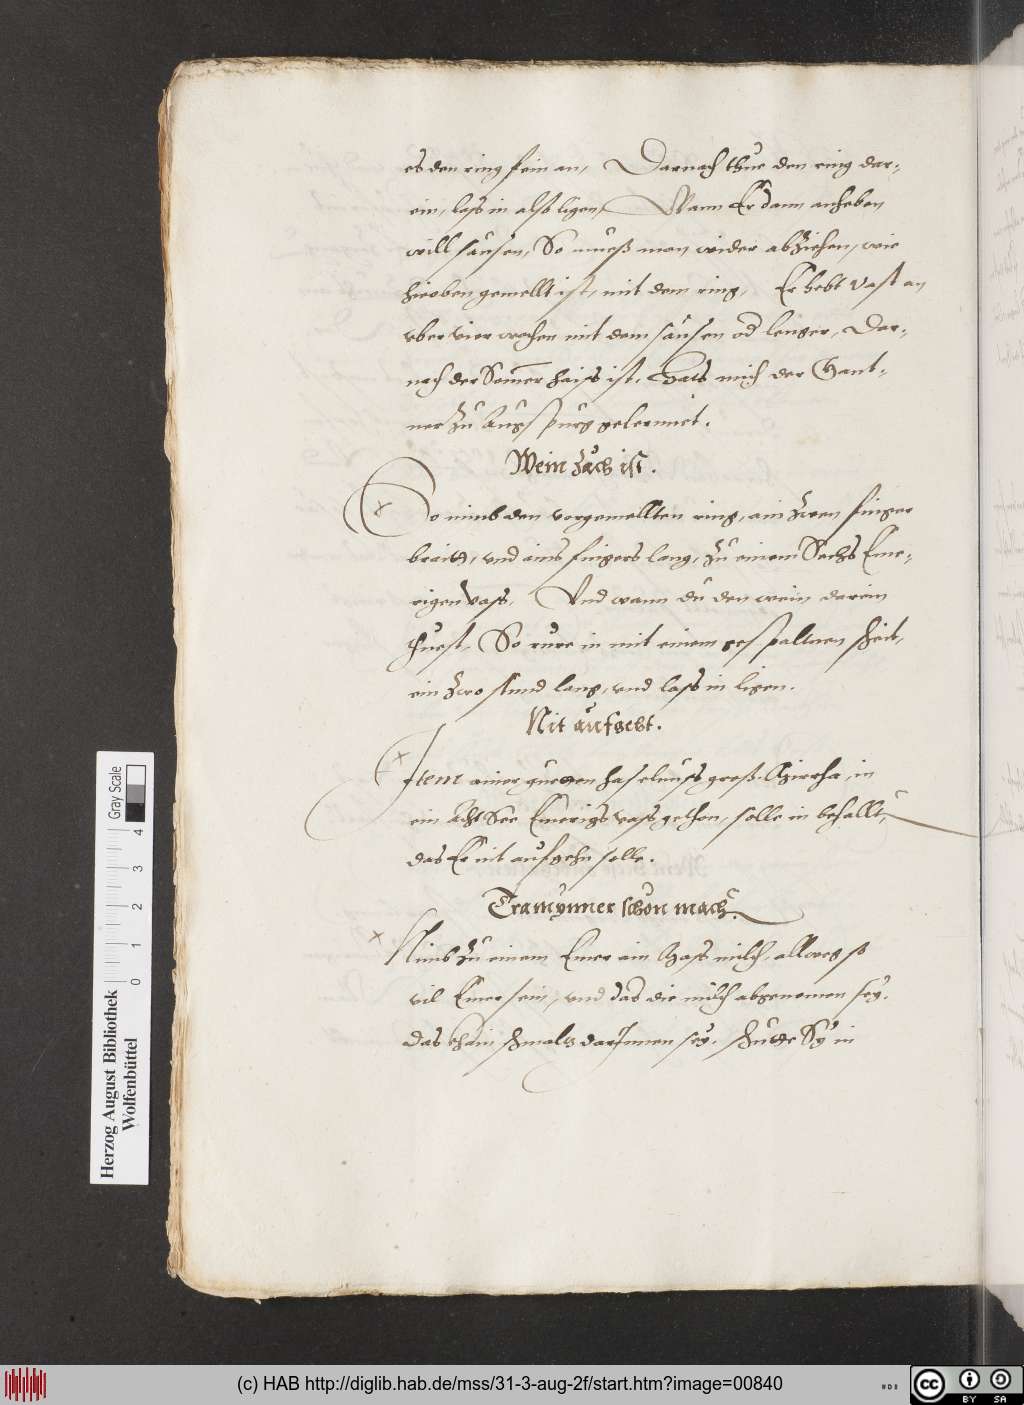 es den ring fein an, Darnach thue den ring dar-
ein, lass in also ligen, Wann Er dann anheben
will sausen, So muess man wider abziehen, wie
hieoben gemellt ist, mit dem ring, Er hebt vast an
vber vier wochen mit dem sausen od lenger, Dar-
nach der Somer haiss ist, Hats mich der Gant-
ner zu Augspurg gelernnet.
Wein zäch ist.
So nimb den vorgemellten ring, ain zwen finger
braitt, vnd ains fingers lang, zu einem Sechs Eme-
rigen Vass, Vnd wann du den wein darein
thuest, So rure in mit einem gespaltnen scheit,
ein zwo stund lang, vnd lass in ligen.
Nit aufgebt.
Item ainer guetten haselnuss gross in
ein Acht See Emerigs vass gethon, solle in behallt,
das Er nit aufgehn solle.
Tramynner schon mach.
Nimb zu einem Emer ain Mass milch, allweg so
vil Emer sein, vnd das die milch abgenomen sey,
das khain schmaltz darInnen sey, schutte Sy in
Gray Scale
0 1 2 3 4
Herzog August Bibliothek
Wolfenbüttel
(c) HAB http://diglib.hab.de/mss/31-3-aug-2f/start.htm?image=00840
cc BY SA